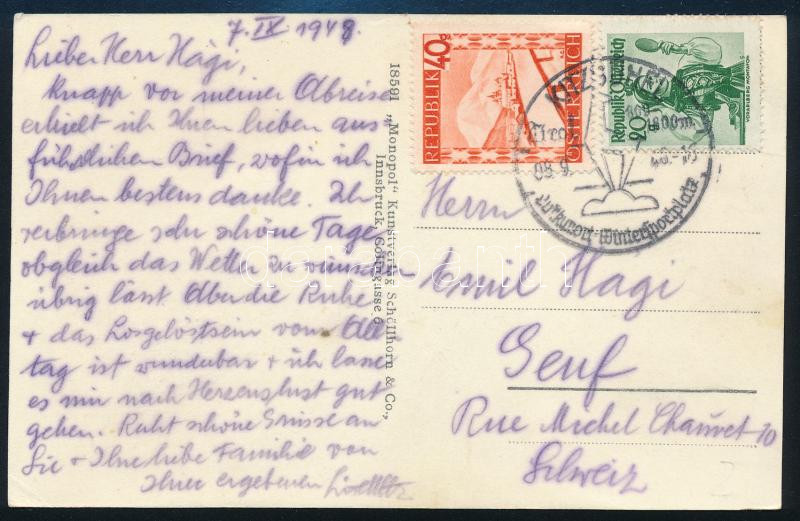 7. IX 1948.
Lieber Herr Hagi,
Knapp vor meiner Abreise
erhielt ich Ihren lieben aus
führlichen Brief, wofür ich
Ihnen bestens danke. Ich
verbringe sehr schöne Tage
obgleich das Wetter zu wünschen
übrig lässt. Aber die Ruhe
+ das Losgelöstsein vom All
tag ist wunderbar + ich lasse
es mir nach Herzenslust gut
gehen. Recht schöne Grüsse an
Sie + Ihre liebe Familie von
Ihrer ergebenen
18591 „Monopol" Kunstverlag Schöllhorn & Co.,
Innsbruck
REPUBLIK
40g
ÖSTERREICH
Republik Österreich
20g
VORARLBERG MONTAFON
KITZBÜHEL
Tirol
1800m
08.9.
48.-15
Luftkurort-Wintersportplatz
Herrn
Emil Hagi
Genf
Rue Michel Chauvet 10
Schweiz